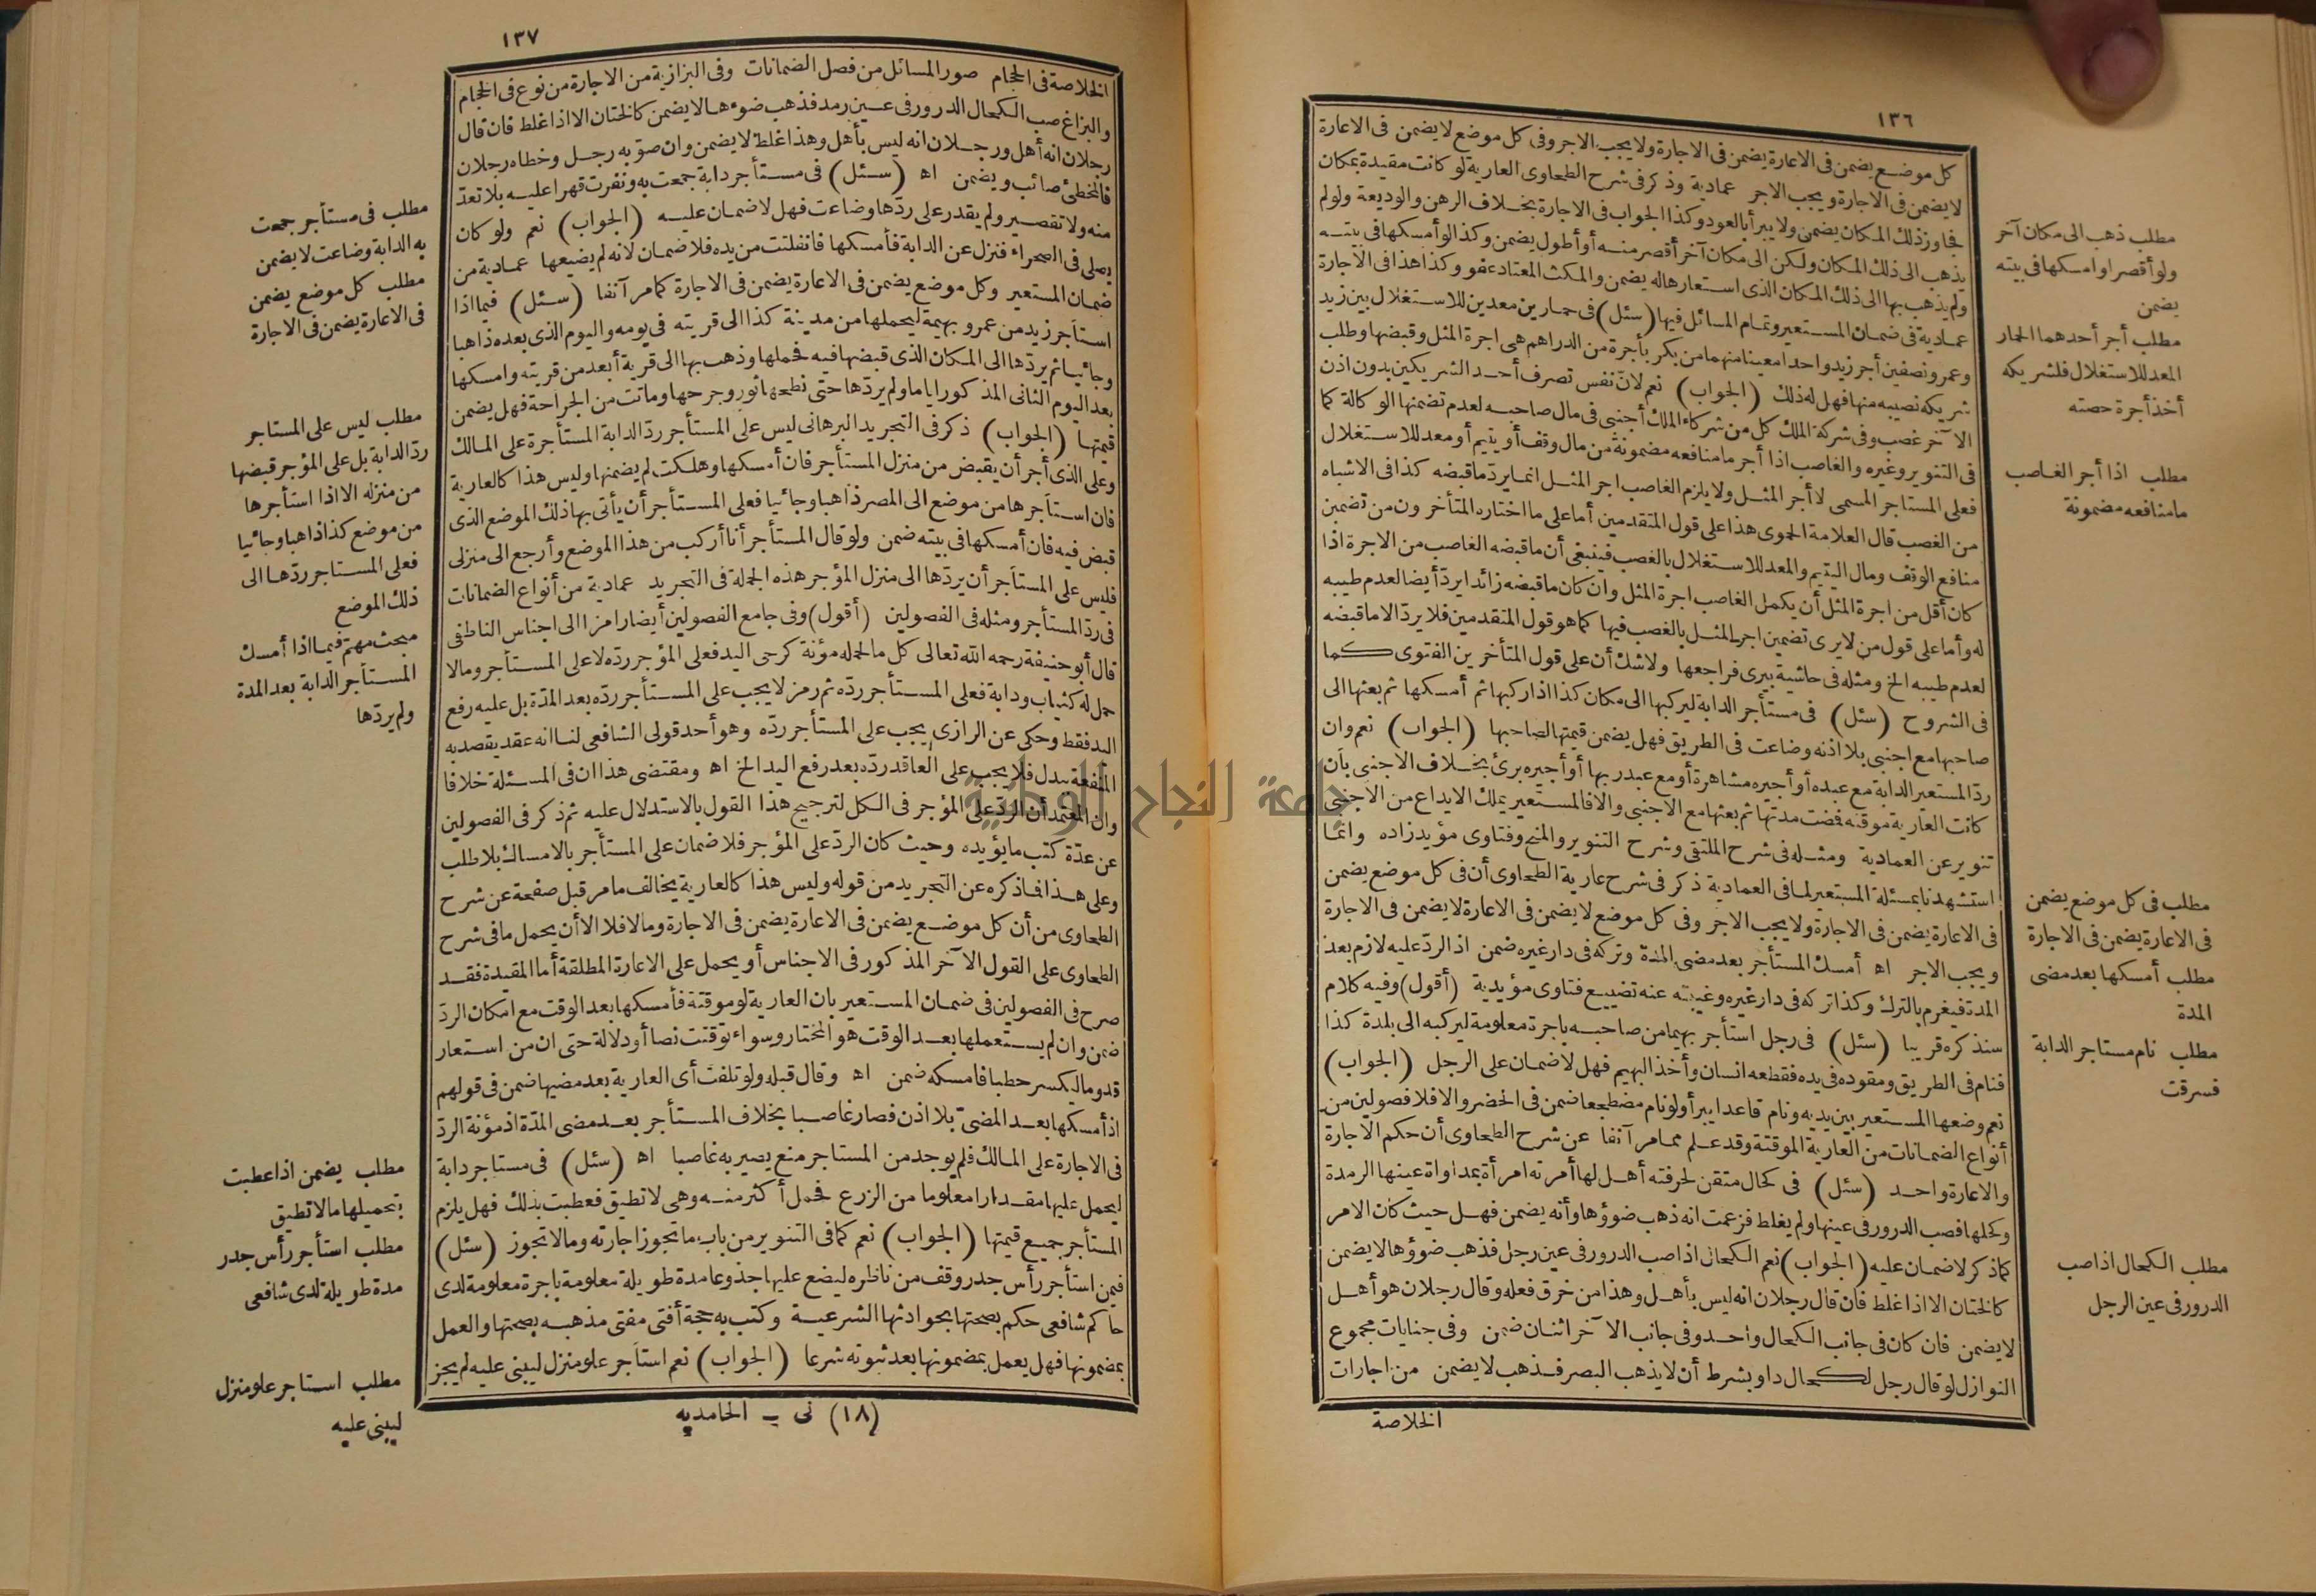 ١٣٦
كل موضع يضمن فى الاعارة يضمن فى الاجارة ولا يجب الاجر وفى كل موضع لا يضمن فى الاعارة
لا يضمن فى الاجارة ويجب الاجر عمادية وذكر فى شرح الطحاوى العارية لو كانت مقيدة بمكان
فجاوز ذلك المكان يضمن ولا يبرأ بالعود وكذا الجواب فى الاجارة بخلاف الرهن والوديعة ولو لم
يذهب الى ذلك المكان ولكن الى مكان آخر أقصر منه أو أطول يضمن وكذا لو أمسكها فى بيته
ولم يذهب بها الى ذلك المكان الذى استعارها له يضمن والمكث المعتاد عفو وكذا هذا فى الاجارة
عمادية فى ضمان المستعير وتمام المسائل فيها (سئل) فى حمارين معدين للاستغلال بين زيد
وعمرو نصفين أجر زيد واحدا معينا منهما من بكر بأجرة من الدراهم هى اجرة المثل وقبضها وطلب
شريكه نصيبه منها فهل له ذلك (الجواب) نعم لان نفس تصرف أحد الشريكين بدون اذن
الآخر غصب وفى شركة الملك كل من شركاء الملك أجنبى فى مال صاحبه لعدم تضمنها الوكالة كما
فى التنوير وغيره والغاصب اذا أجر ما منافعه مضمونة من مال وقف أو يتيم أو معد للاستغلال
فعلى المستاجر المسمى لا أجر المثل ولا يلزم الغاصب اجر المثل انما يرد ما قبضه كذا فى الاشباه
من الغصب قال العلامة الحموى هذا على قول المتقدمين أما على ما اختاره المتأخرون من تضمين
منافع الوقف ومال اليتيم والمعد للاستغلال بالغصب فينبغى أن ما قبضه الغاصب من الاجرة اذا
كان أقل من اجرة المثل أن يكمل الغاصب اجرة المثل وان كان ما قبضه زائدا يرد أيضا لعدم طيبه
له وأما على قول من لا يرى تضمين اجر المثل بالغصب فيها كما هو قول المتقدمين فلا يرد الا ما قبضه
لعدم طيبه الخ ومثله فى حاشية بيرى فراجعها ولا شك أن على قول المتأخرين الفتوى كما
فى الشروح (سئل) فى مستأجر الدابة ليركبها الى مكان كذا اذا ركبها ثم أمسكها ثم بعثها الى
صاحبها مع اجنبى بلا اذنه وضاعت فى الطريق فهل يضمن قيمتها لصاحبها (الجواب) نعم وان
رد المستعير الدابة مع عبده أو أجيره مشاهرة أو مع عبد ربها أو أجيره برئ بخلاف الاجنبى بأن
كانت العارية موقتة فمضت مدتها ثم بعثها مع الاجنبى والا فالمستعير يملك الايداع من الاجنبى
تنوير عن العمادية ومثله فى شرح الملتقى وشرح التنوير والمنح وفتاوى مؤيد زاده وانما
استشهدنا بمسئلة المستعير لما فى العمادية ذكر فى شرح عارية الطحاوى أن فى كل موضع يضمن
فى الاعارة يضمن فى الاجارة ولا يجب الاجر وفى كل موضع لا يضمن فى الاعارة لا يضمن فى الاجارة
ويجب الاجر اه أمسك المستأجر بعد مضى المدة وتركه فى دار غيره ضمن اذ الرد عليه لازم بعد
المدة فيغرم بالترك وكذا تركه فى دار غيره وغيبته عنه تضييع فتاوى مؤيدية (أقول) وفيه كلام
سنذكره قريبا (سئل) فى رجل استأجر بهيما من صاحبه باجرة معلومة ليركبه الى بلدة كذا
فنام فى الطريق ومقوده فى يده فقطعه انسان وأخذ البهيم فهل لا ضمان على الرجل (الجواب)
نعم وضعها المستعير بين يديه ونام قاعدا يبرأ ولو نام مضطجعا ضمن فى الحضر والا فلا فصولين من
أنواع الضمانات من العارية الموقتة وقد علم مما مر آنفا عن شرح الطحاوى أن حكم الاجارة
والاعارة واحد (سئل) فى كحال متقن لحرفته أهل لها أمرته امرأة بمداواة عينها الرمدة
وكحلها فصب الدرور فى عينها ولم يغلط فزعمت انه ذهب ضوؤها وأنه يضمن فهل حيث كان الامر
كما ذكر لا ضمان عليه (الجواب) نعم الكحال اذا صب الدرور فى عين رجل فذهب ضوؤها لا يضمن
كالختان الا اذا غلط فان قال رجلان انه ليس بأهل وهذا من خرق فعله وقال رجلان هو أهل
لا يضمن فان كان فى جانب الكحال واحد وفى جانب الآخر اثنان ضمن وفى جنايات مجموع
النوازل لو قال رجل لكحال داو بشرط أن لا يذهب البصر فذهب لا يضمن من اجارات
الخلاصة
مطلب ذهب الى مكان آخر
ولو أقصر او امسكها فى بيته
يضمن
مطلب أجر أحدهما الحمار
المعد للاستغلال فلشريكه
أخذ أجرة حصته
مطلب اذا أجر الغاصب
ما منافعه مضمونة
مطلب فى كل موضع يضمن
فى الاعارة يضمن فى الاجارة
مطلب أمسكها بعد مضى
المدة
مطلب نام مستاجر الدابة
فسرقت
مطلب الكحال اذا صب
الدرور فى عين الرجل
١٣٧
الخلاصة فى الحجام صور المسائل من فصل الضمانات وفى البزازية من الاجارة من نوع فى الحجام
والبزاغ صب الكحال الدرور فى عين رمد فذهب ضوءها لا يضمن كالختان الا اذا غلط فان قال
رجلان انه أهل ورجلان انه ليس بأهل وهذا غلط لا يضمن وان صوبه رجل وخطاه رجلان
فالمخطئ صائب ويضمن اه (سئل) فى مستأجر دابة جمعت به ونفرت قهرا عليه بلا تعد
منه ولا تقصير ولم يقدر على ردها وضاعت فهل لا ضمان عليه (الجواب) نعم ولو كان
يصلى فى الصحراء فنزل عن الدابة فأمسكها فانفلتت من يده فلا ضمان لانه لم يضيعها عمادية من
ضمان المستعير وكل موضع يضمن فى الاعارة يضمن فى الاجارة كما مر آنفا (سئل) فيما اذا
استأجر زيد من عمرو بهيمة ليحملها من مدينة كذا الى قريته فى يومه واليوم الذى بعده ذاهبا
وجائيا ثم يردها الى المكان الذى قبضها فيه فحملها وذهب بها الى قرية أبعد من قريته وامسكها
بعد اليوم الثانى المذكور اياما ولم يردها حتى نطحها ثور وجرحها وماتت من الجراحة فهل يضمن
قيمتها (الجواب) ذكر فى التجريد البرهانى ليس على المستأجر رد الدابة المستأجرة على المالك
وعلى الذى أجر أن يقبض من منزل المستأجر فان أمسكها وهلكت لم يضمنها وليس هذا كالعارية
فان استأجرها من موضع الى المصر ذاهبا وجائيا فعلى المستأجر أن يأتى بها ذلك الموضع الذى
قبض فيه فان أمسكها فى بيته ضمن ولو قال المستأجر أنا أركب من هذا الموضع وأرجع الى منزلى
فليس على المستأجر أن يردها الى منزل المؤجر هذه الجملة فى التجريد عمادية من أنواع الضمانات
فى رد المستأجر ومثله فى الفصولين (أقول) وفى جامع الفصولين أيضا رامزا الى اجناس الناطفى
قال أبو حنيفة رحمه الله تعالى كل ما لحمله مؤنة كرحى اليد فعلى المؤجر رده لا على المستأجر وما لا
حمل له كثياب ودابة فعلى المستأجر رده ثم رمز لا يجب على المستأجر رده بعد المدة بل عليه رفع
اليد فقط وحكى عن الرازى يجب على المستأجر رده وهو أحد قولى الشافعى لنا انه عقد يقصد به
المنفعة ببدل فلا يجب على العاقد رده بعد رفع اليد الخ اه ومقتضى هذا ان فى المسئلة خلافا
وان المعتمد أن الرد على المؤجر فى الكل لترجيح هذا القول بالاستدلال عليه ثم ذكر فى الفصولين
عن عدة كتب ما يؤيده وحيث كان الرد على المؤجر فلا ضمان على المستأجر بالامساك بلا طلب
وعلى هذا فما ذكره عن التجريد من قوله وليس هذا كالعارية يخالف ما مر قبل صفحة عن شرح
الطحاوى من أن كل موضع يضمن فى الاعارة يضمن فى الاجارة وما لا فلا الا أن يحمل ما فى شرح
الطحاوى على القول الآخر المذكور فى الاجناس أو يحمل على الاعارة المطلقة أما المقيدة فقد
صرح فى الفصولين فى ضمان المستعير بان العارية لو موقتة فأمسكها بعد الوقت مع امكان الرد
ضمن وان لم يستعملها بعد الوقت هو المختار وسواء توقتت نصا أو دلالة حتى ان من استعار
قدوما ليكسر حطبا فامسكه ضمن اه وقال قبله ولو تلفت أى العارية بعد مضيها ضمن فى قولهم
اذ أمسكها بعد المضى بلا اذن فصار غاصبا بخلاف المستأجر بعد مضى المدة اذ مؤنة الرد
فى الاجارة على المالك فلم يوجد من المستاجر منع يصير به غاصبا اه (سئل) فى مستاجر دابة
ليحمل عليها مقدارا معلوما من الزرع فحمل أكثر منه وهى لا تطيق فعطبت بذلك فهل يلزم
المستأجر جميع قيمتها (الجواب) نعم كما فى التنوير من باب ما تجوز اجارته وما لا تجوز (سئل)
فيمن استأجر رأس جدر وقف من ناظره ليضع عليها جذوعا مدة طويلة معلومة باجرة معلومة لدى
حاكم شافعى حكم بصحتها بحوادثها الشرعية وكتب به حجة أفتى مفتى مذهبه بصحتها والعمل
بمضمونها فهل يعمل بمضمونها بعد ثبوته شرعا (الجواب) نعم استأجر علو منزل ليبنى عليه لم يجز
(١٨) نى - الحامديه
مطلب فى مستأجر جمعت
به الدابة وضاعت لا يضمن
مطلب كل موضع يضمن
فى الاعارة يضمن فى الاجارة
مطلب ليس على المستاجر
رد الدابة بل على المؤجر قبضها
من منزله الا اذا استأجرها
من موضع كذا ذاهبا وجائيا
فعلى المستاجر ردها الى
ذلك الموضع
مبحث مهم فيما اذا أمسك
المستأجر الدابة بعد المدة
ولم يردها
مطلب يضمن اذا عطبت
بتحميلها ما لا تطيق
مطلب استأجر رأس جدر
مدة طويلة لدى شافعى
مطلب استاجر علو منزل
ليبنى عليه
جامعة النجاح الوطنية